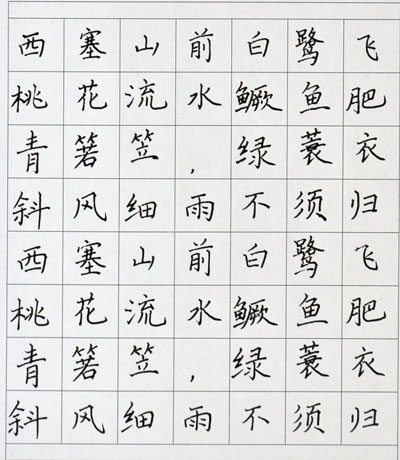 西塞山前白鹭飞
桃花流水鳜鱼肥
青箬笠，绿蓑衣
斜风细雨不须归
西塞山前白鹭飞
桃花流水鳜鱼肥
青箬笠，绿蓑衣
斜风细雨不须归